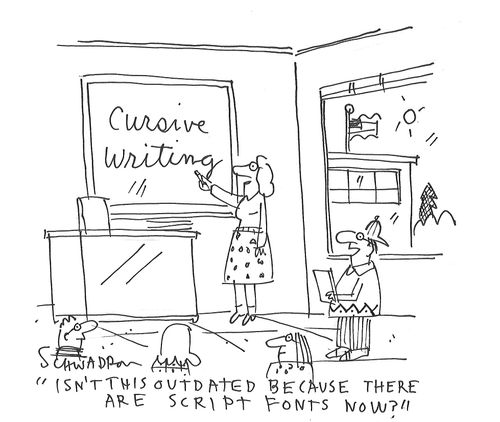 Cursive
Writing
SCHWADRON
"ISN'T THIS OUTDATED BECAUSE THERE
ARE SCRIPT FONTS NOW?"